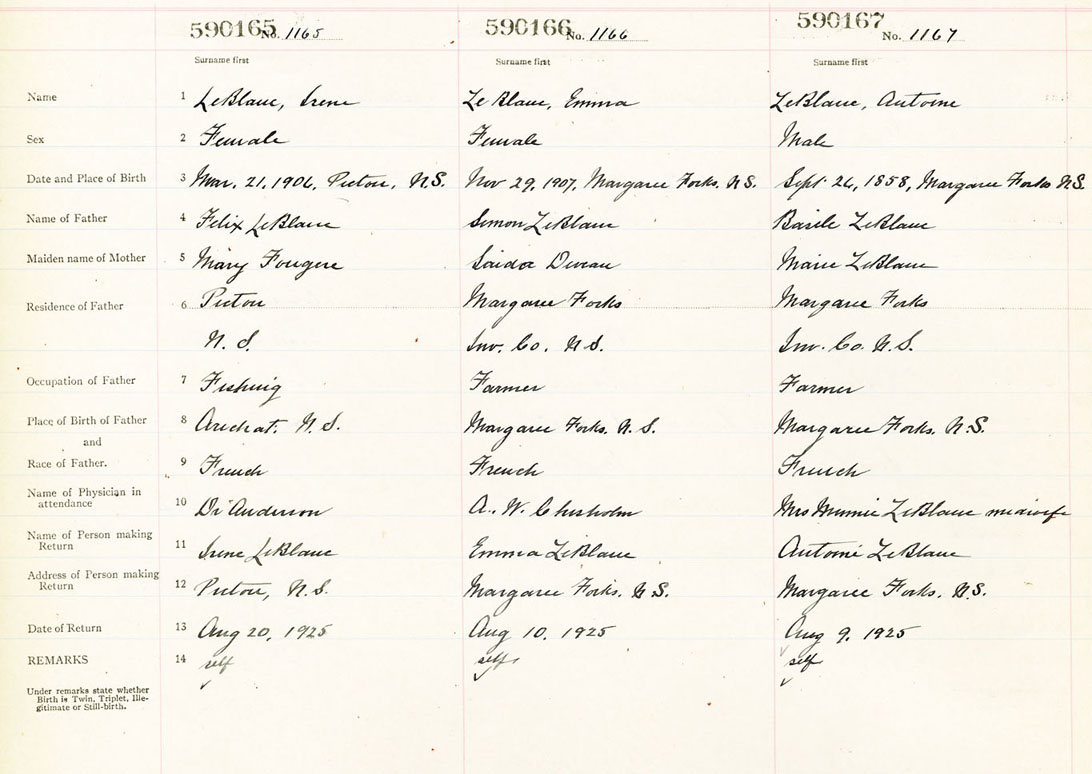 590165 No. 1165 590166 No. 1166 590167 No. 1167
Surname first Surname first Surname first
Name 1 LeBlanc, Irene LeBlanc, Emma LeBlanc, Antoine
Sex 2 Female Female Male
Date and Place of Birth 3 Mar. 21, 1906, Pictou, N.S. Nov 29, 1907, Margaree Forks, N.S. Sept 26, 1858, Margaree Forks N.S.
Name of Father 4 Felix LeBlanc Simon LeBlanc Basile LeBlanc
Maiden name of Mother 5 Mary Fougere Deveau Marie LeBlanc
Residence of Father 6 Pictou Margaree Forks Margaree Forks
N. S. Inv. Co. N.S. Inv. Co. N.S.
Occupation of Father 7 Fishing Farmer Farmer
Place of Birth of Father 8 Arichat. N. S. Margaree Forks. N. S. Margaree Forks. N.S.
and
Race of Father. 9 French French French
Name of Physician in
attendance 10 Dr Anderson A. W. Chisholm Mrs Minnie LeBlanc midwife
Name of Person making
Return 11 Irene LeBlanc Emma LeBlanc Antoine LeBlanc
Address of Person making
Return 12 Pictou, N.S. Margaree Forks. N.S. Margaree Forks. N.S.
Date of Return 13 Aug 20, 1925 Aug 10. 1925 Aug 9. 1925
REMARKS 14 self self self
Under remarks state whether
Birth is Twin, Triplet, Ille-
gitimate or Still-birth.